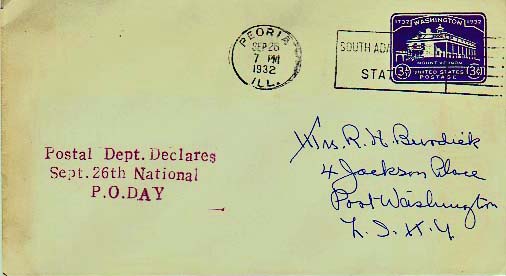 PEORIA
SEP 26
7 PM
1932
ILL.
SOUTH ADA
STAT
1732 WASHINGTON 1932
MOUNT VERNON
3¢ UNITED STATES 3¢
POSTAGE
Postal Dept. Declares
Sept. 26th National
P.O.DAY
Mrs. R. H. Burdick
4 Jackson Place
Port Washington
L. I. N. Y